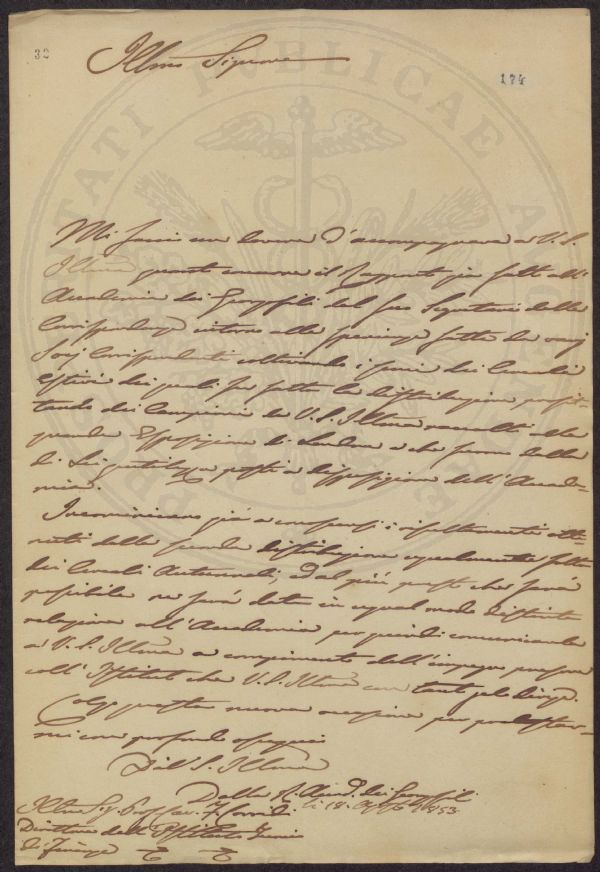 32
174
Illmo Signore
Mi faccio un dovere d'accompagnare a V. S.
Illma quanto concerne il Rapporto già fatto all'
Accademia dei Georgofili dal suo Segretario delle
Corrispondenze intorno alle sperienze fatte da varj
Socj Corrispondenti coltivando i semi dei Cereali
estivi dei quali fu fatta la distribuzione profit-
tando dei Campioni da V. S. Illma raccolti alla
grande Esposizione di Londra e che furono dalla
di Lei gentilezza posti a disposizione dell'Accade-
mia.
Incominciano già a conoscersi i risultamenti otte-
nuti dalla seconda distribuzione egualmente fatta
dei Cereali Autunnali, e dal più presto che sarà
possibile ne sarà data in egual modo distinta
relazione all'Accademia per quindi comunicarla
a V. S. Illma a compimento dell'impegno preso
coll'Istituto che V. S. Illma con tanto zelo dirige.
Colgo questa nuova occasione per protestar-
mi con profondo ossequio
Di V. S. Illma
Dalla R. Accad. dei Georgofili
li 18. Agosto 1853
Illmo Sig. Prof. Cav. F. Corridi
Direttore dell'Istituto Tecnico
di Firenze